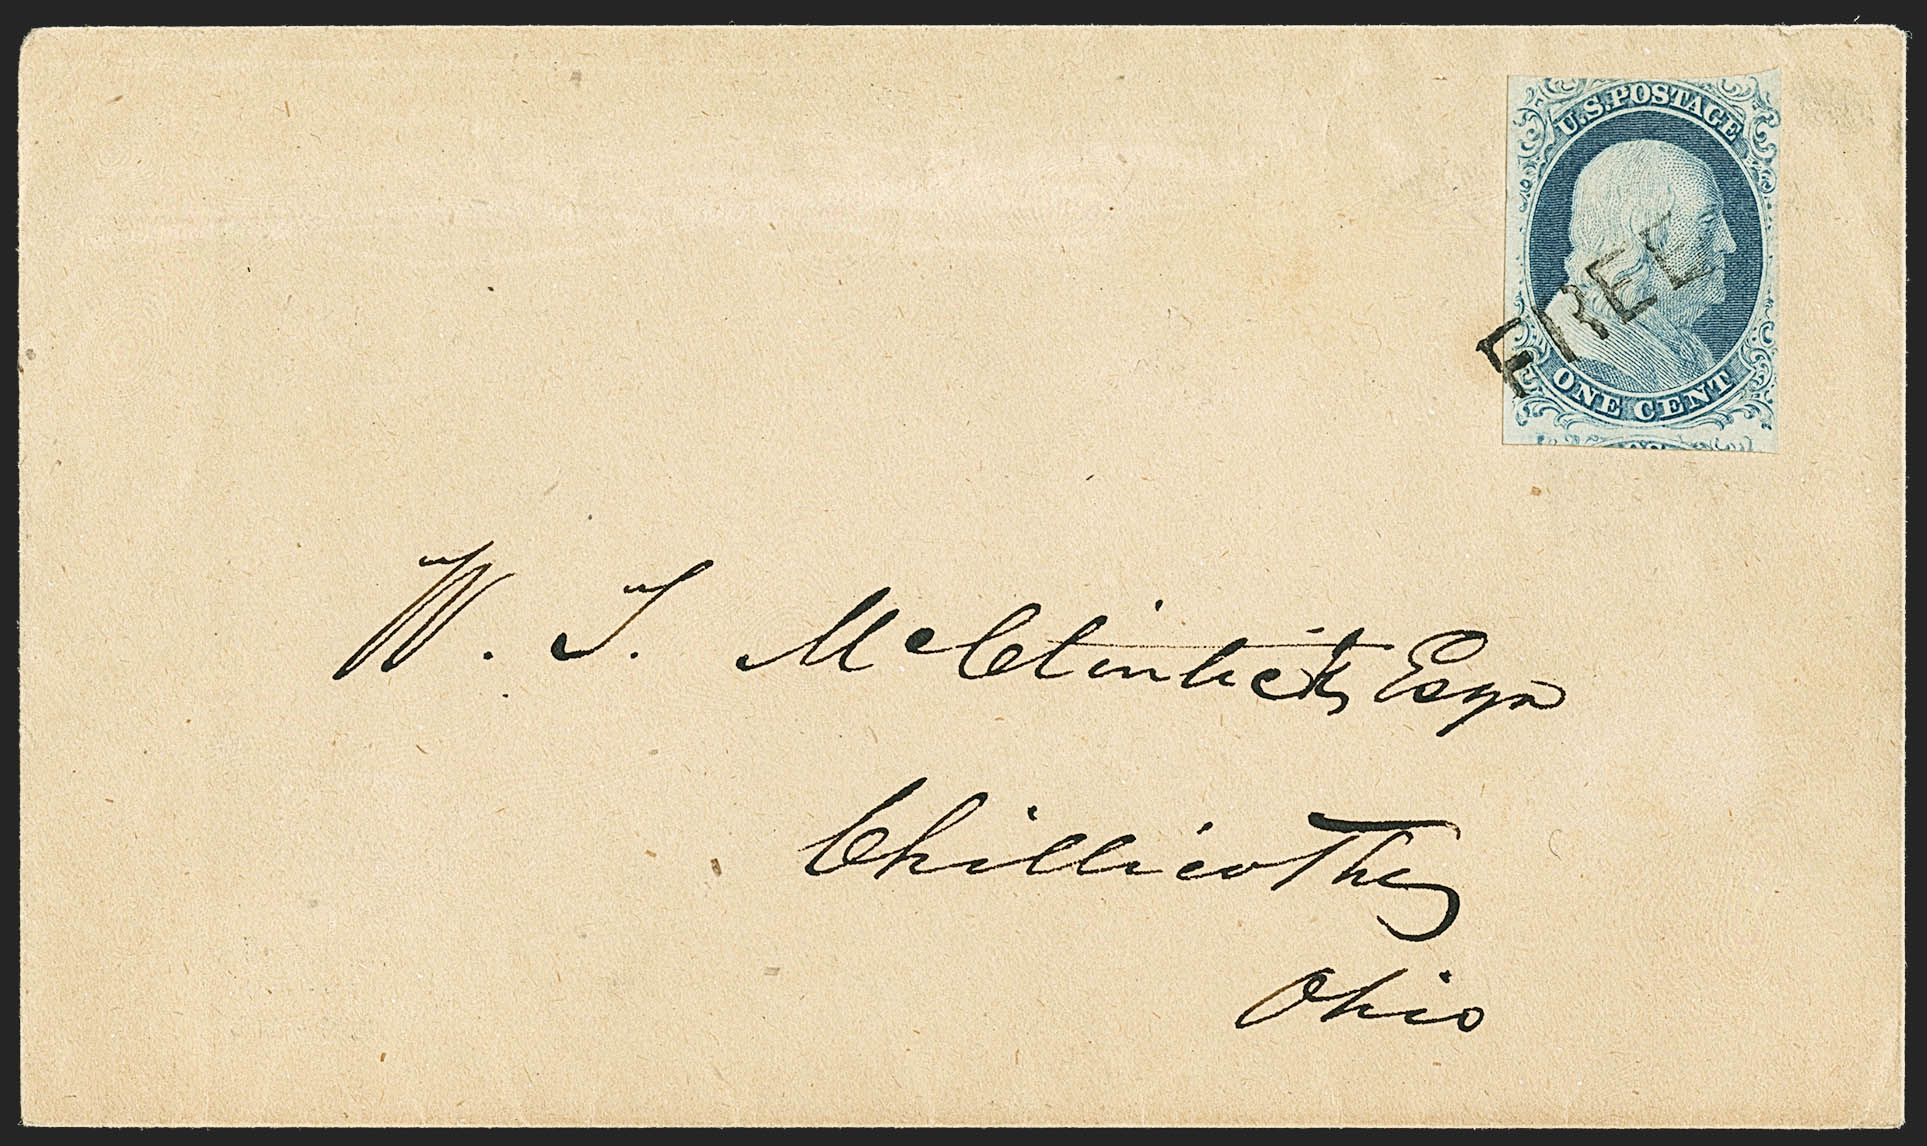 U.S. POSTAGE
FREE
ONE CENT
W. T. McClintick, Esqr
Chillicothe,
Ohio